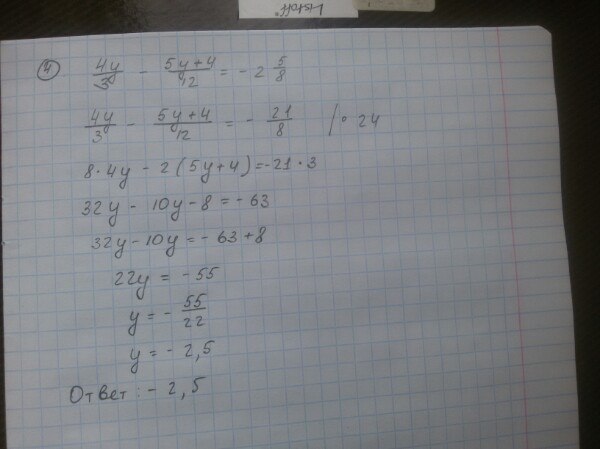 ④ 4y/3 - (5y+4)/12 = -2 5/8
4y/3 - (5y+4)/12 = - 21/8 |· 24
8·4y - 2(5y+4)=-21·3
32y - 10y - 8 = - 63
32y - 10y = - 63 + 8
22y = - 55
y = - 55/22
y = - 2,5
Ответ: - 2,5